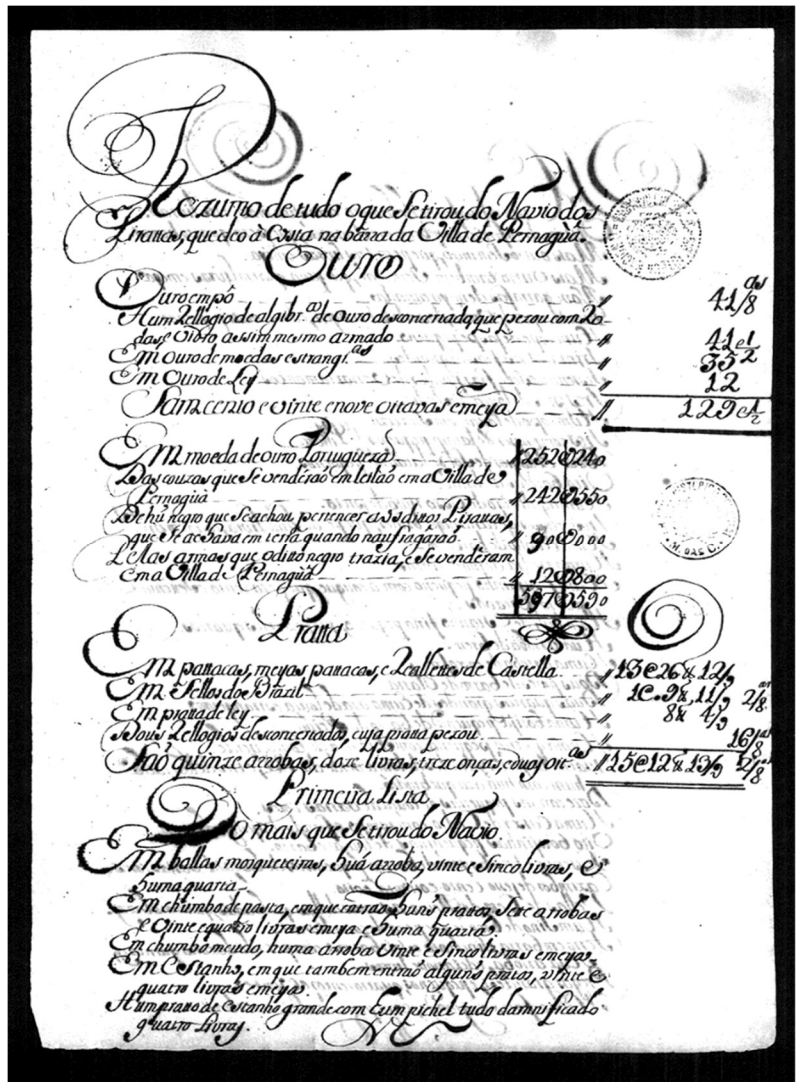 Rezumo de tudo o que se tirou do Navio dos
Piratas, que deo à Costa na barra da Villa de Pernaguâ.
Ouro
Ouro em pô 41/8.as
Hum Rellogio de algibr.ª de Ouro desconcertado, que pezou com
das, e Vidro assim mesmo armado 41 e 1/2
Em Ouro de moedas estrangr.as 35
Em Ouro de Ley 12
Sam cento e vinte e nove oitavas e meya 129 e 1/2
Em moeda de ouro Portugueza 252@240
Das couzas que se venderaõ em leilaõ em a Villa de
Pernaguà 242@550
De hû negro que se achou pertencer a os dittos Piratas,
que se achava em terra quando naufragaraõ 90@000
Pellas armas que o ditto negro trazia, e se venderam
em a Villa de Pernaguâ 12@800
597@590
Pratta
Em pattacas, meyas pattacas, e Realletes de Castella 13@26 12/9
Em Sellos do Brazil 1@.9 11/9 2/8
Em pratta de ley 8 4/9
Dous Rellogios desconcertados, cuja pratta pezou 16/8.as
Saõ quinze arrobas, doze livras, treze onças, e duas oit.as 15@12 13/9 2/8.as
Primeira Lista
Do mais que se tirou do Navio.
Em ballas mosqueteiras, huã arroba, vinte e sinco livras, e
huma quarta
Em chumbo de pasta, em que entraõ huns prattos, sete arrobas
e vinte e quatro livras e meya e huma quarta.
Em chumbo meudo, huma arroba vinte e sinco livras e meya
Em Estanho, em que tambem entraõ alguns pratos, vinte e
quatro livras e meya
Hum prato de estanho grande com hum pichel tudo damnificado
quatro Livras.